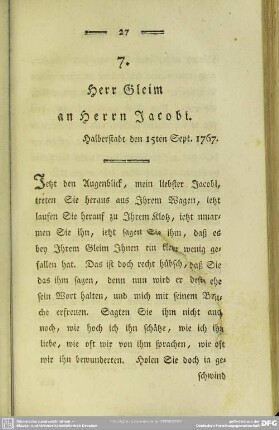 27
7.
Herr Gleim
an Herrn Jacobi.
Halberstadt den 15ten Sept. 1767.
Jetzt den Augenblick, mein liebster Jacobi,
treten Sie heraus aus Ihrem Wagen, jetzt
laufen Sie herauf zu Ihrem Klotz, jetzt umar-
men Sie ihn, jetzt sagen Sie ihm, daß es
bey Ihrem Gleim Ihnen ein klein wenig ge-
fallen hat. Das ist doch recht hübsch, daß Sie
das ihm sagen, denn nun wird er desto ehe
sein Wort halten, und mich mit seinem Besu-
che erfreuen. Sagten Sie ihm nicht auch
noch, wie hoch ich ihn schätze, wie ich ihn
liebe, wie oft wir von ihm sprachen, wie oft
wir ihn bewunderten. Holen Sie doch ja ge-
schwind